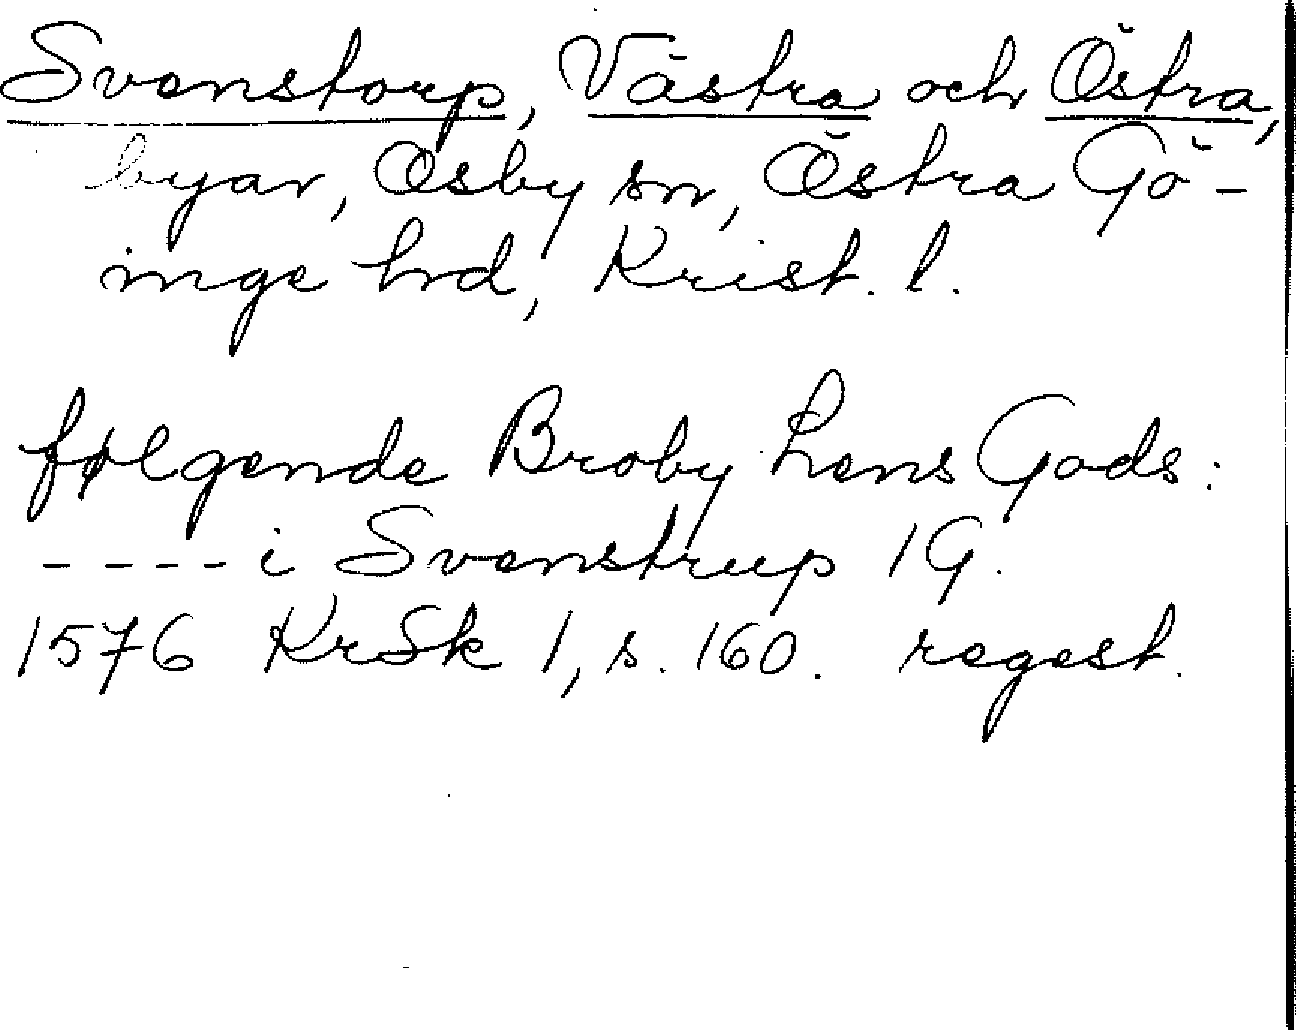 Svenstorp, Västra och Östra,
byar, Osby sn, Östra Gö-
inge hd, Krist. l.
følgende Broby Lens Gods:
---- i Svenstrup 1 G.
1576 KrSk 1, s. 160. regest.